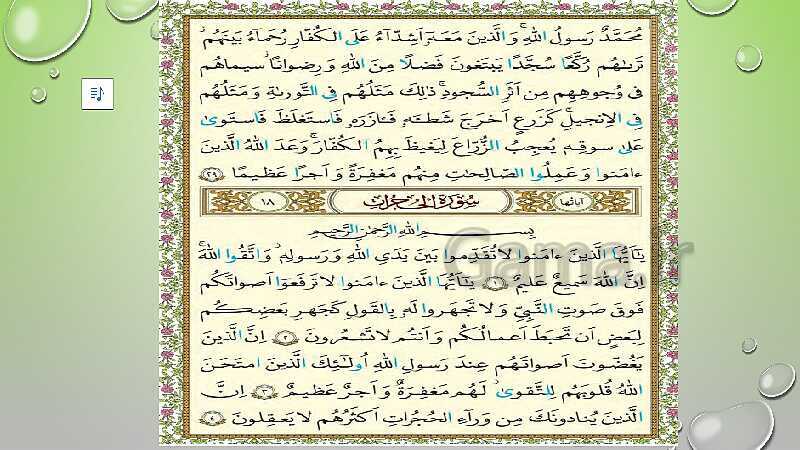 مُحَمَّدٌ رَسولُ اللهِ ۚ وَ الَّذینَ مَعَهٗ اَشِدّآءُ عَلَی الکُفّارِ رُحَمآءُ بَینَهُم ۖ
تَراهُم رُکَّعًا سُجَّدًا یَبتَغونَ فَضلًا مِنَ اللهِ وَ رِضوانًا ۖ سیماهُم
فی وُجوهِهِم مِن اَثَرِ السُّجودِ ۚ ذٰلِكَ مَثَلُهُم فِی التَّوراةِ ۚ وَ مَثَلُهُم
فِی الاِنجیلِ کَزَرعٍ اَخرَجَ شَطئَهٗ فَـٔازَرَهٗ فَاستَغلَظَ فَاستَویٰ
عَلیٰ سوقِهٖ یُعجِبُ الزُّرّاعَ لِیَغیظَ بِهِمُ الکُفّارَ ۗ وَعَدَ اللهُ الَّذینَ
ءامَنوا وَ عَمِلُوا الصّالِحاتِ مِنهُم مَغفِرَةً وَ اَجرًا عَظیمًا ﴿۲۹﴾
آیاتها سُورَةُ الحُجُرات ۱۸
بِسمِ اللهِ الرَّحمٰنِ الرَّحیمِ
یٰاَیُّهَا الَّذینَ ءامَنوا لا تُقَدِّموا بَینَ یَدَیِ اللهِ وَ رَسولِهٖ ۖ وَ اتَّقُوا اللهَ ۚ
اِنَّ اللهَ سَمیعٌ عَلیمٌ ﴿۱﴾ یٰاَیُّهَا الَّذینَ ءامَنوا لا تَرفَعوٓا اَصواتَکُم
فَوقَ صَوتِ النَّبِیِّ وَ لا تَجهَروا لَهٗ بِالقَولِ کَجَهرِ بَعضِکُم
لِبَعضٍ اَن تَحبَطَ اَعمالُکُم وَ اَنتُم لا تَشعُرونَ ﴿۲﴾ اِنَّ الَّذینَ
یَغُضّونَ اَصواتَهُم عِندَ رَسولِ اللهِ اُولٰٓئِكَ الَّذینَ امتَحَنَ
اللهُ قُلوبَهُم لِلتَّقویٰ ۚ لَهُم مَغفِرَةٌ وَ اَجرٌ عَظیمٌ ﴿۳﴾ اِنَّ
الَّذینَ یُنادونَكَ مِن وَرآءِ الحُجُراتِ اَکثَرُهُم لا یَعقِلونَ ﴿۴﴾
Gama.ir